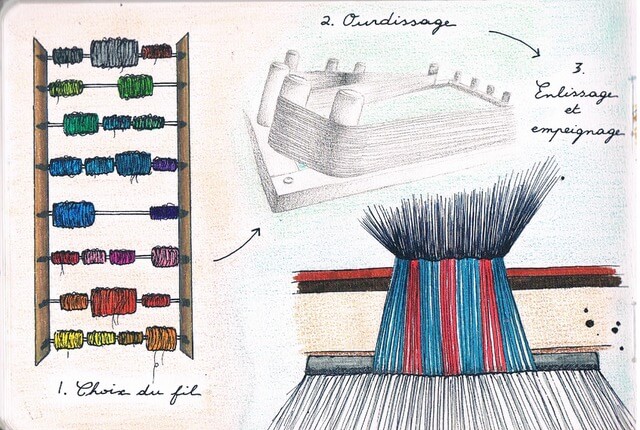 1. Choix du fil
2. Ourdissage
3.
Enlissage
et
empeignage